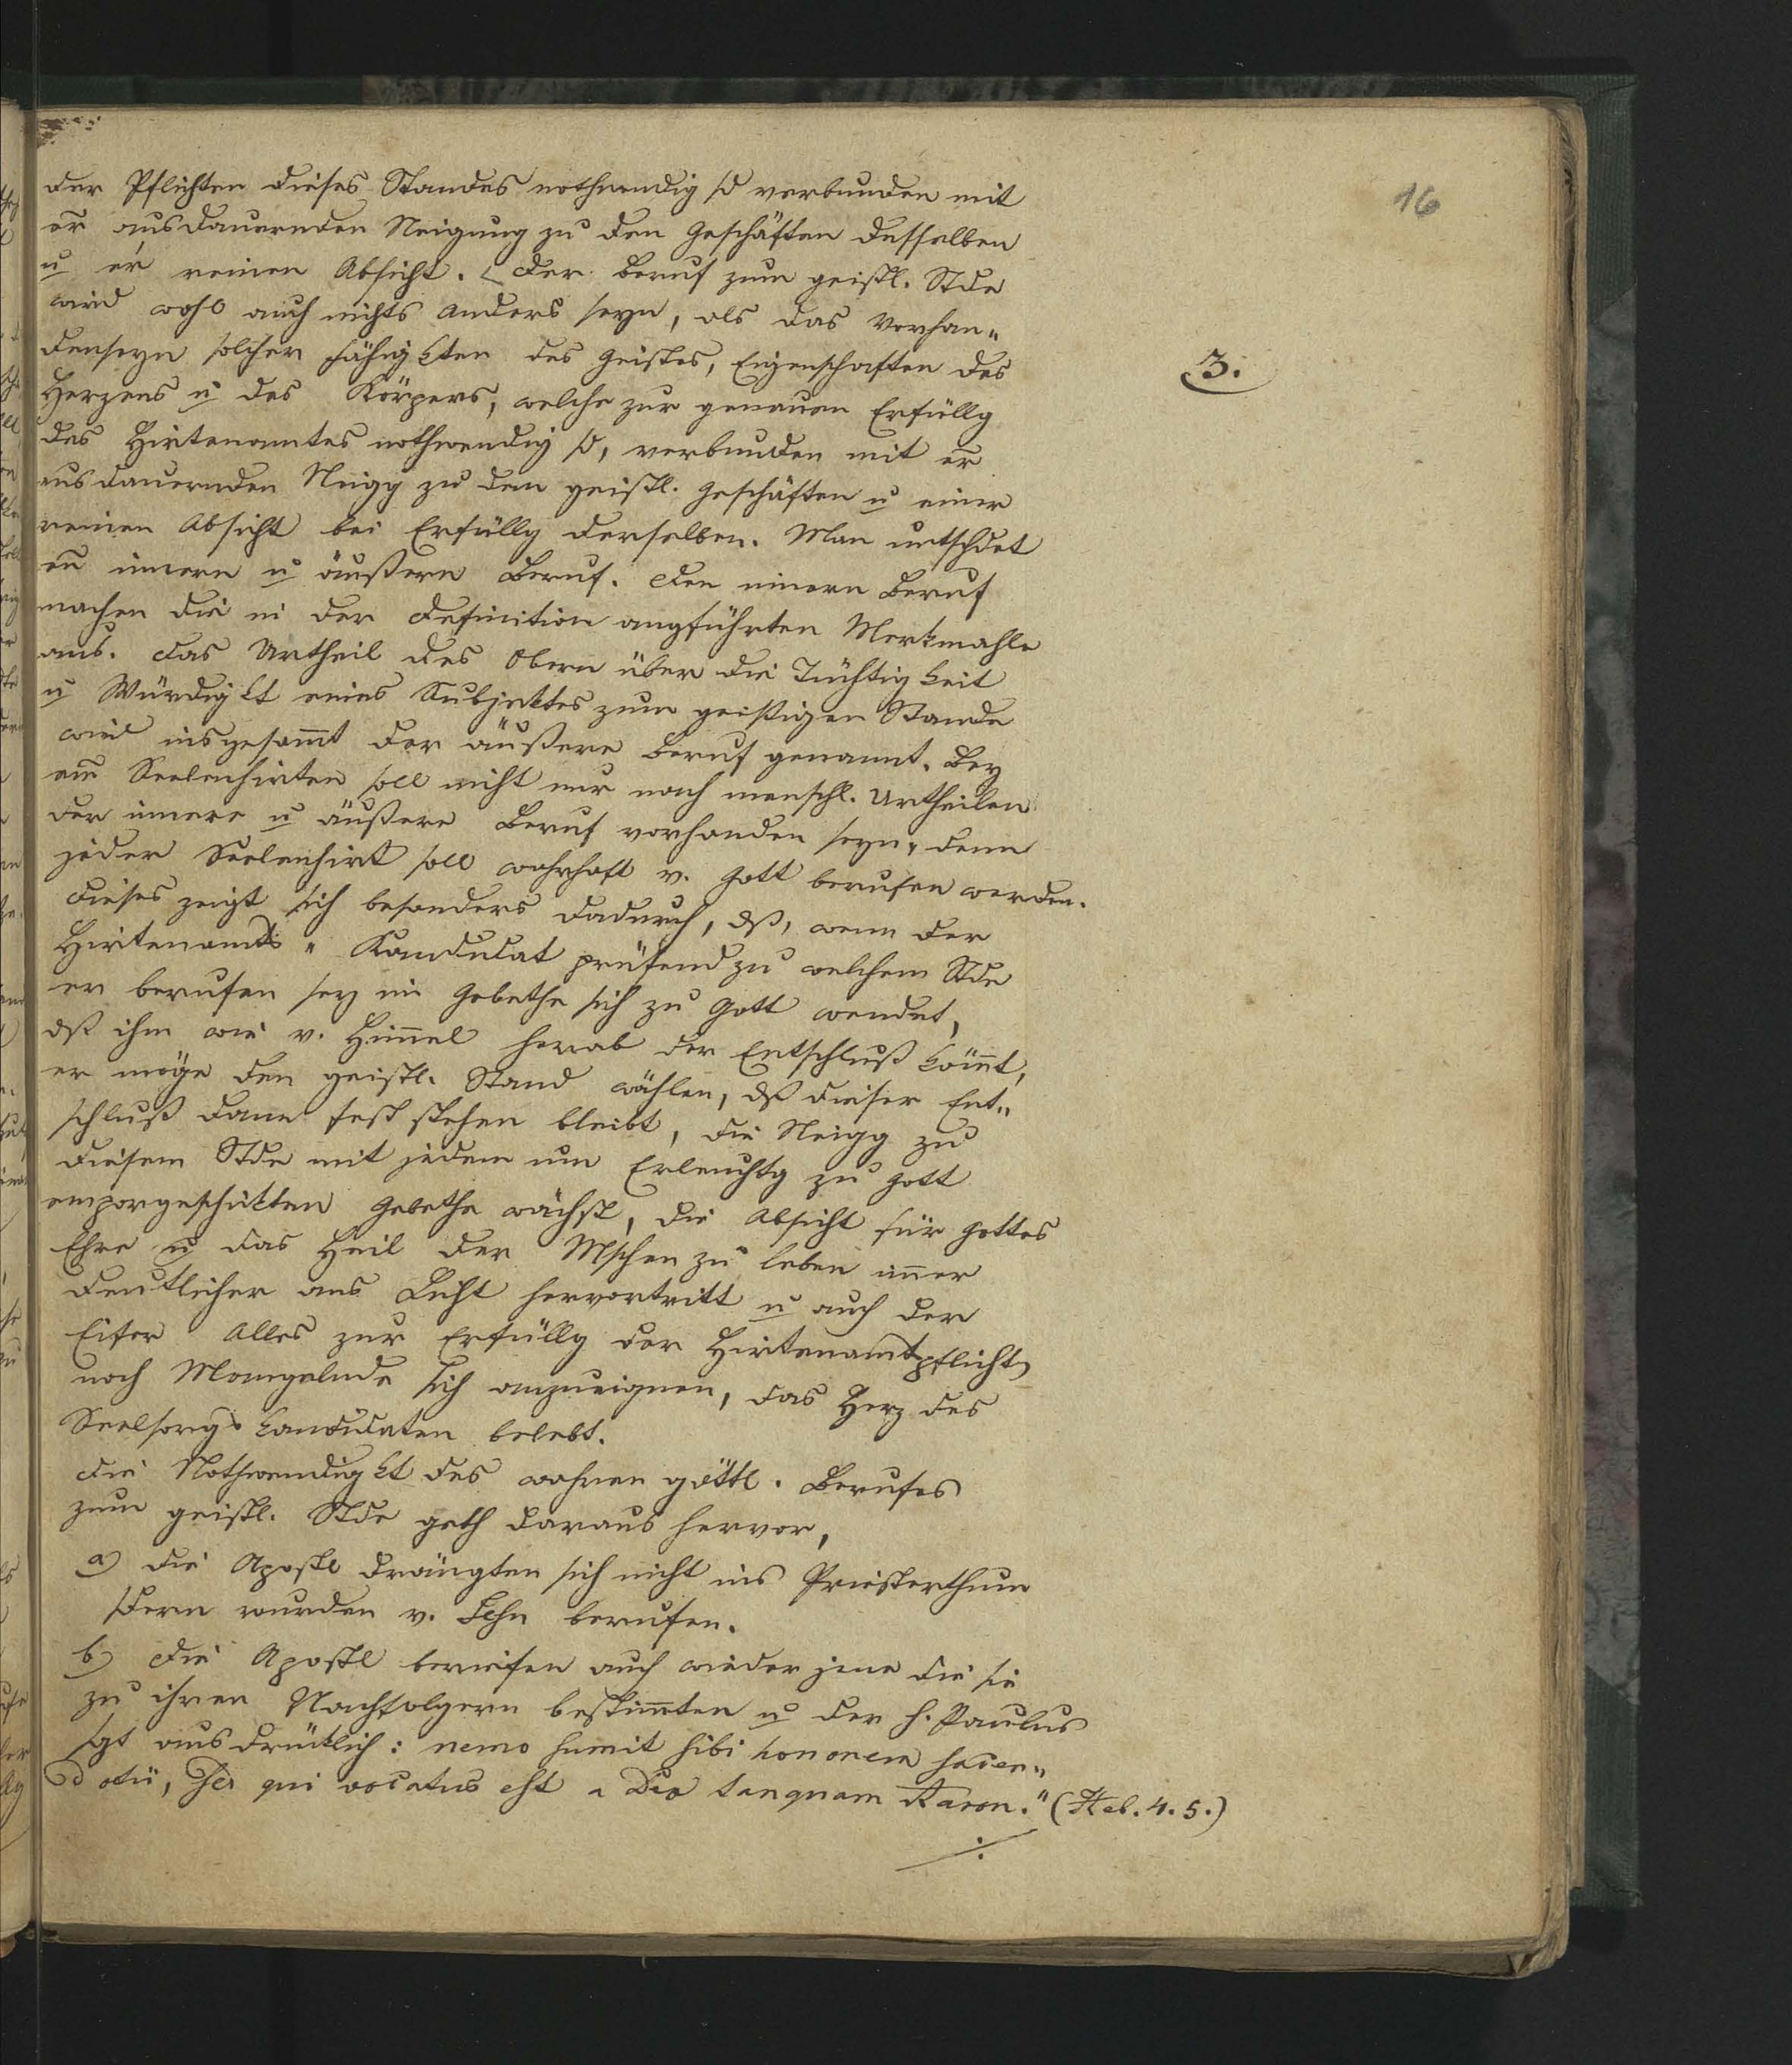 16
der Pflichten dieses Standes nothwendig sd verbunden mit
er ausdauernden Neigung zu den Geschäften desselben
u er reinen Absicht. Der Beruf zum geistl. Stde
wird wohl auch nichts anders seyn, als das Vorhan„
denseyn solcher Fähigkten des Geistes, Eigenschaften des
3.
Herzens u des Körpers, welche zur genauen Erfüllg
des Hirtenamtes nothwendig sd, verbunden mit er
ausdauernden Neigg zu den geistl. Geschäften u einer
reinen Absicht bei Erfüllg derselben. Man untschdet
en innern u äußern Beruf. Den innern Beruf
machen die in der Definition angführten Merkmahle
aus. Das Urtheil des Obern über die Tüchtigkeit
u Würdigkt eines Subjektes zum geistigen Stande
wird insgesam̄t der äußere Beruf genannt. Bey
em Seelenhirten soll nicht nur nach menschl. Urtheilen
der innere u äußere Beruf vorhanden seyn, denn
jeder Seelenhirt soll wahrhaft v. Gott berufen werden.
Dieses zeigt sich besonders dadurch, dß, wenn der
Hirtenamts„Kandidat prüfend zu welchem Stde
er berufen sey im Gebethe sich zu Gott wendet,
dß ihm wie v. Him̄el herab der Entschluß köm̄t,
er möge den geistl. Stand wählen, dß dieser Ent„
schluß dann fest stehen bleibt, die Neigg zu
diesem Stde mit jedem um Erleuchtg zu Gott
emporgeschikten Gebethe wächst, die Absicht für Gottes
Ehre u das Heil der Mschen zu leben im̄er
deutlicher ans Licht hervortritt u auch der
Eifer Alles zur Erfüllg der Hirtenamtpflicht
noch Mangelnde sich anzueignen, das Herz des
Seelsorgskandidaten belebt.
Die Nothwendigkt des wahren göttl. Berufes
zum geistl. Stde geth daraus hervor,
a) Die Apostl drängten sich nicht ins Priesterthum
sdern wurden v. Jesu berufen.
b) Die Apostl beriefen auch wieder jene die sie
zu ihren Nachfolgern bestim̄ten u der h. Paulus
sgt ausdrüklich: nemo sumit sibi honorem sacer„
dotii, sed qui vocatus est a Deo tanquam Aaron." (Heb. 4. 5.)
./.